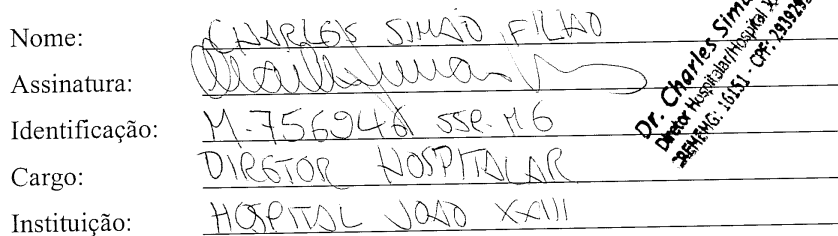 Nome: CHARLES SIMÃO FILHO
Assinatura:
Identificação: M-756946 SSP-MG
Cargo: DIRETOR HOSPITALAR
Instituição: HOSPITAL JOÃO XXIII
Dr. Charles Simão
Diretor Hospitalar/Hospital
CRMEMG: 16151 - CPF: